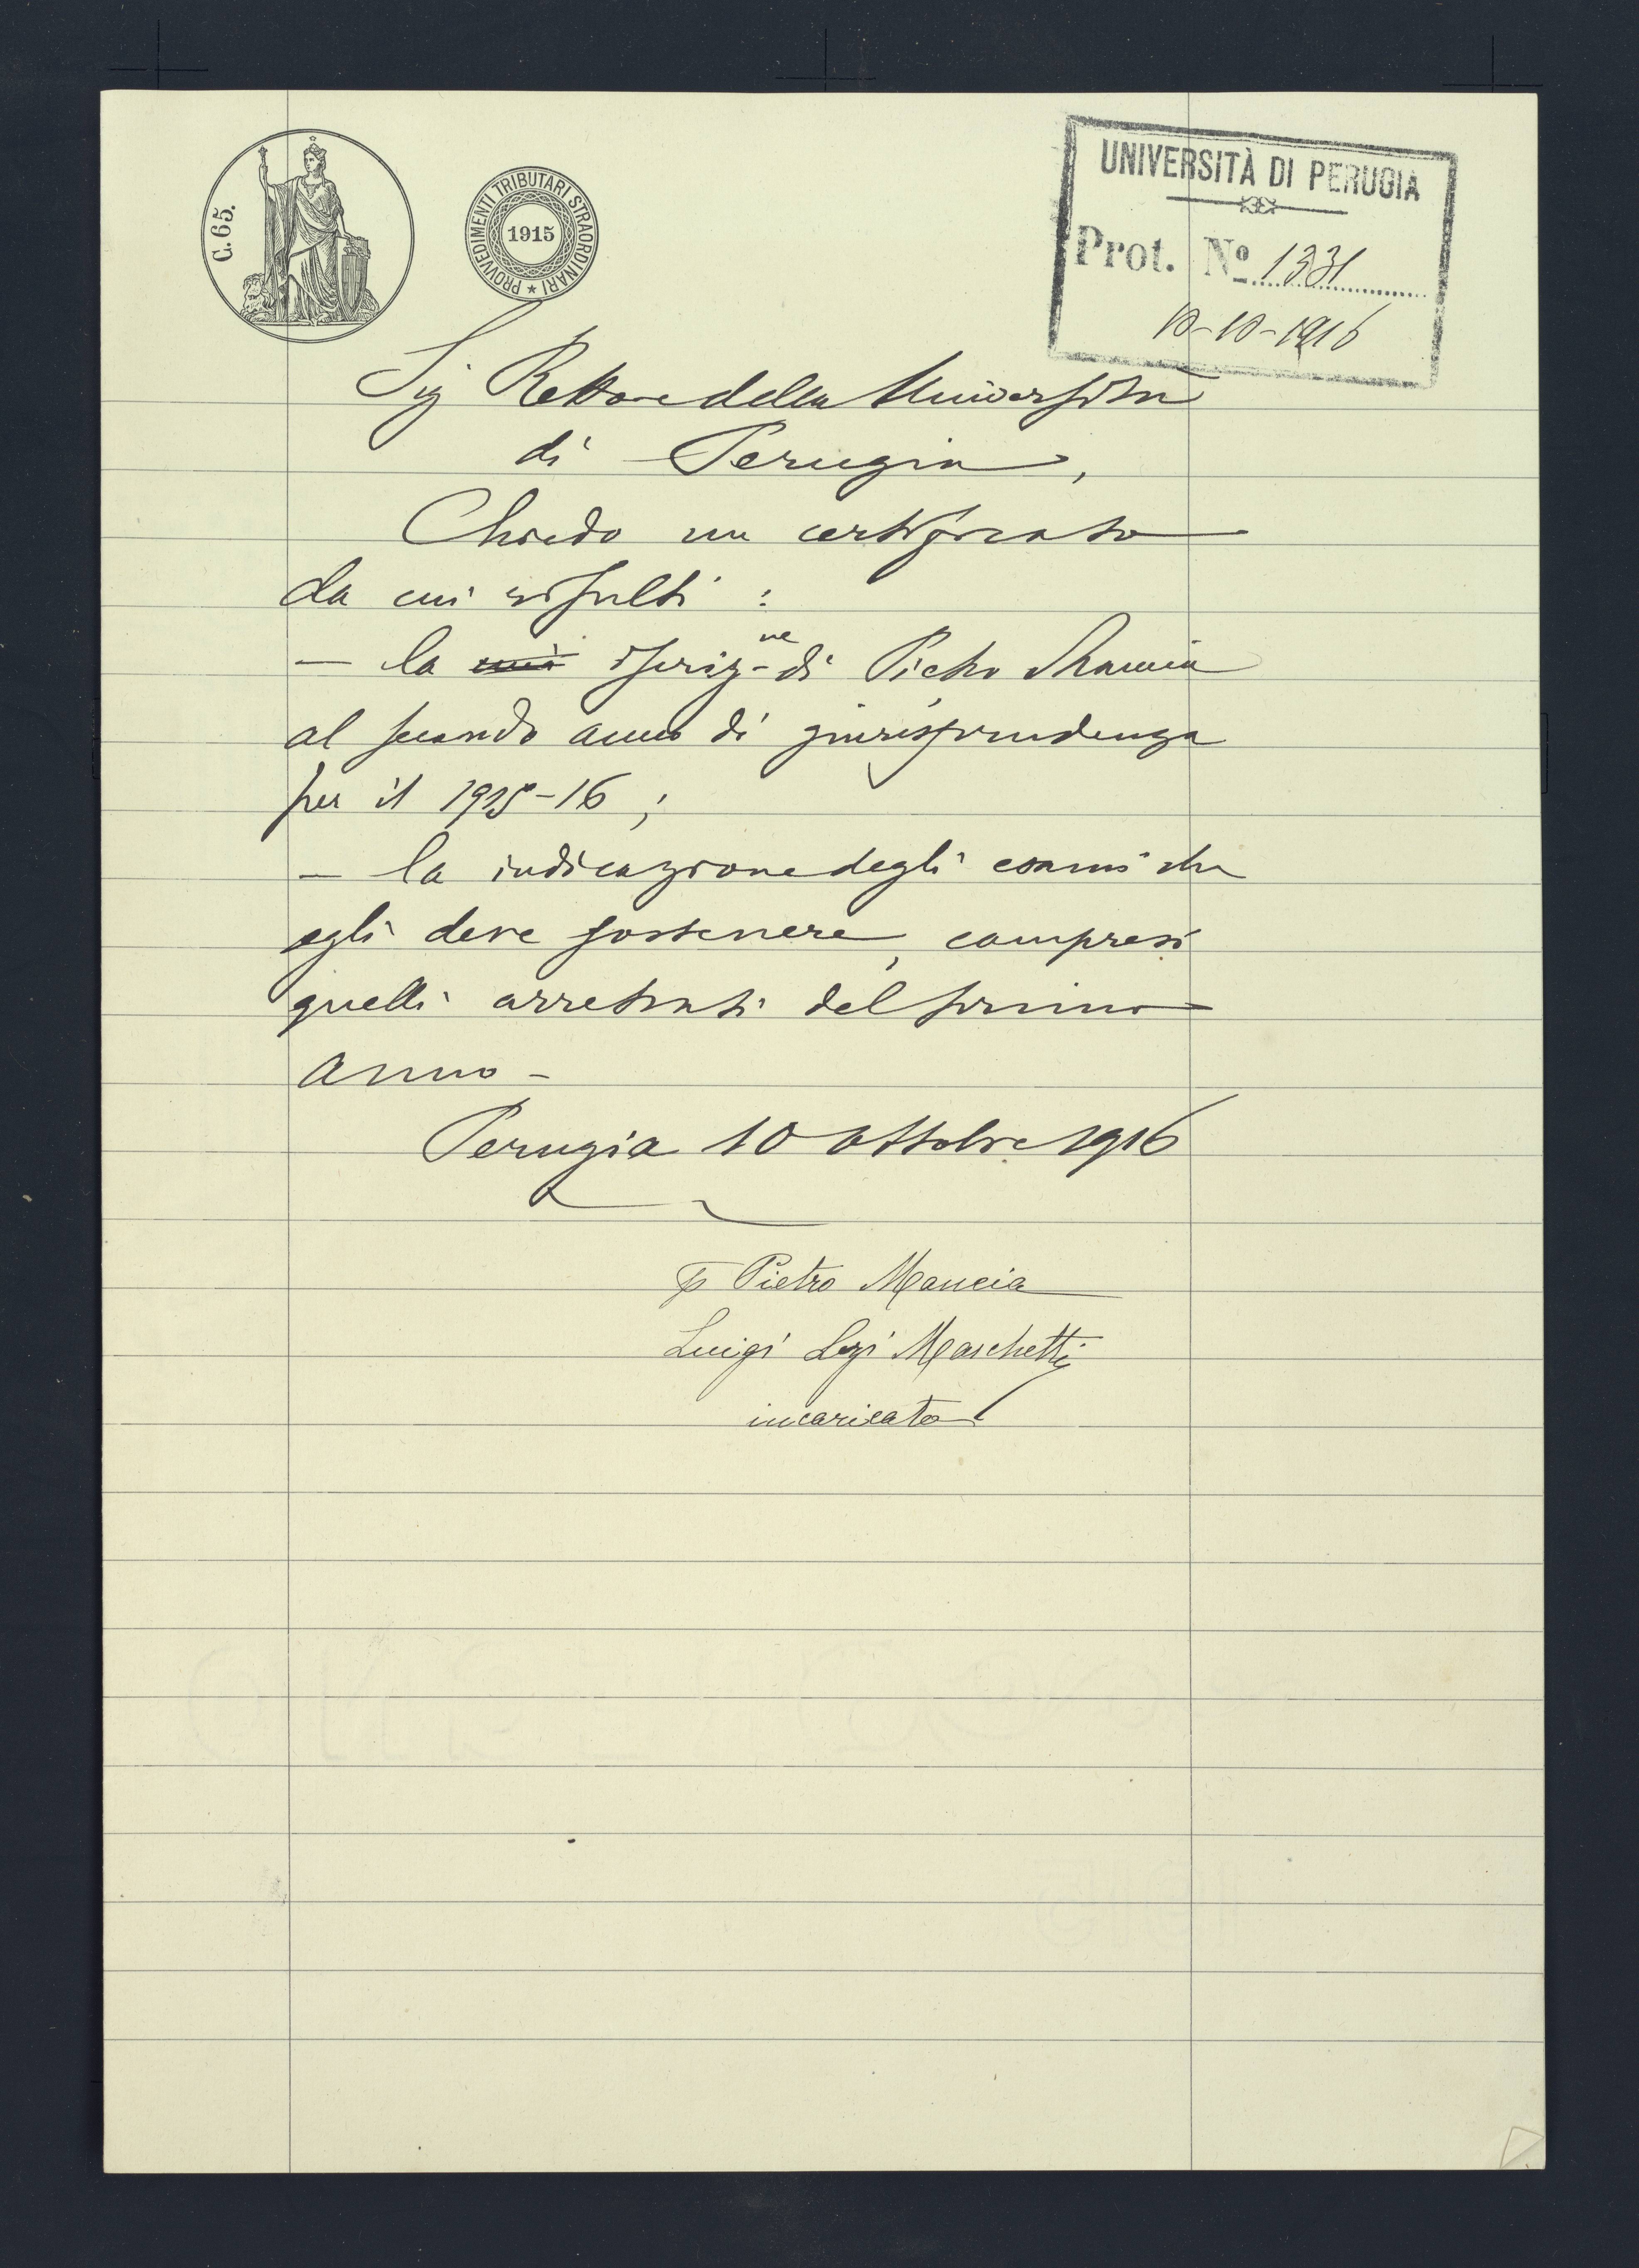 C. 65.
PROVVEDIMENTI TRIBUTARI STRAORDINARI
1915
UNIVERSITÀ DI PERUGIA
Prot. Nº 1331
10-10-1916
Sig Rettore della Università
di Perugia,
Chiedo un certificato
da cui risulti :
— la mia iscriz-ne di Pietro Mancia
al secondo anno di giurisprudenza
per il 1915-16 ;
— la indicazione degli esami che
egli deve sostenere, compresi
quelli arretrati del primo
anno -
Perugia 10 ottobre 1916
Pietro Mancia
Luigi Maschetti
incaricato